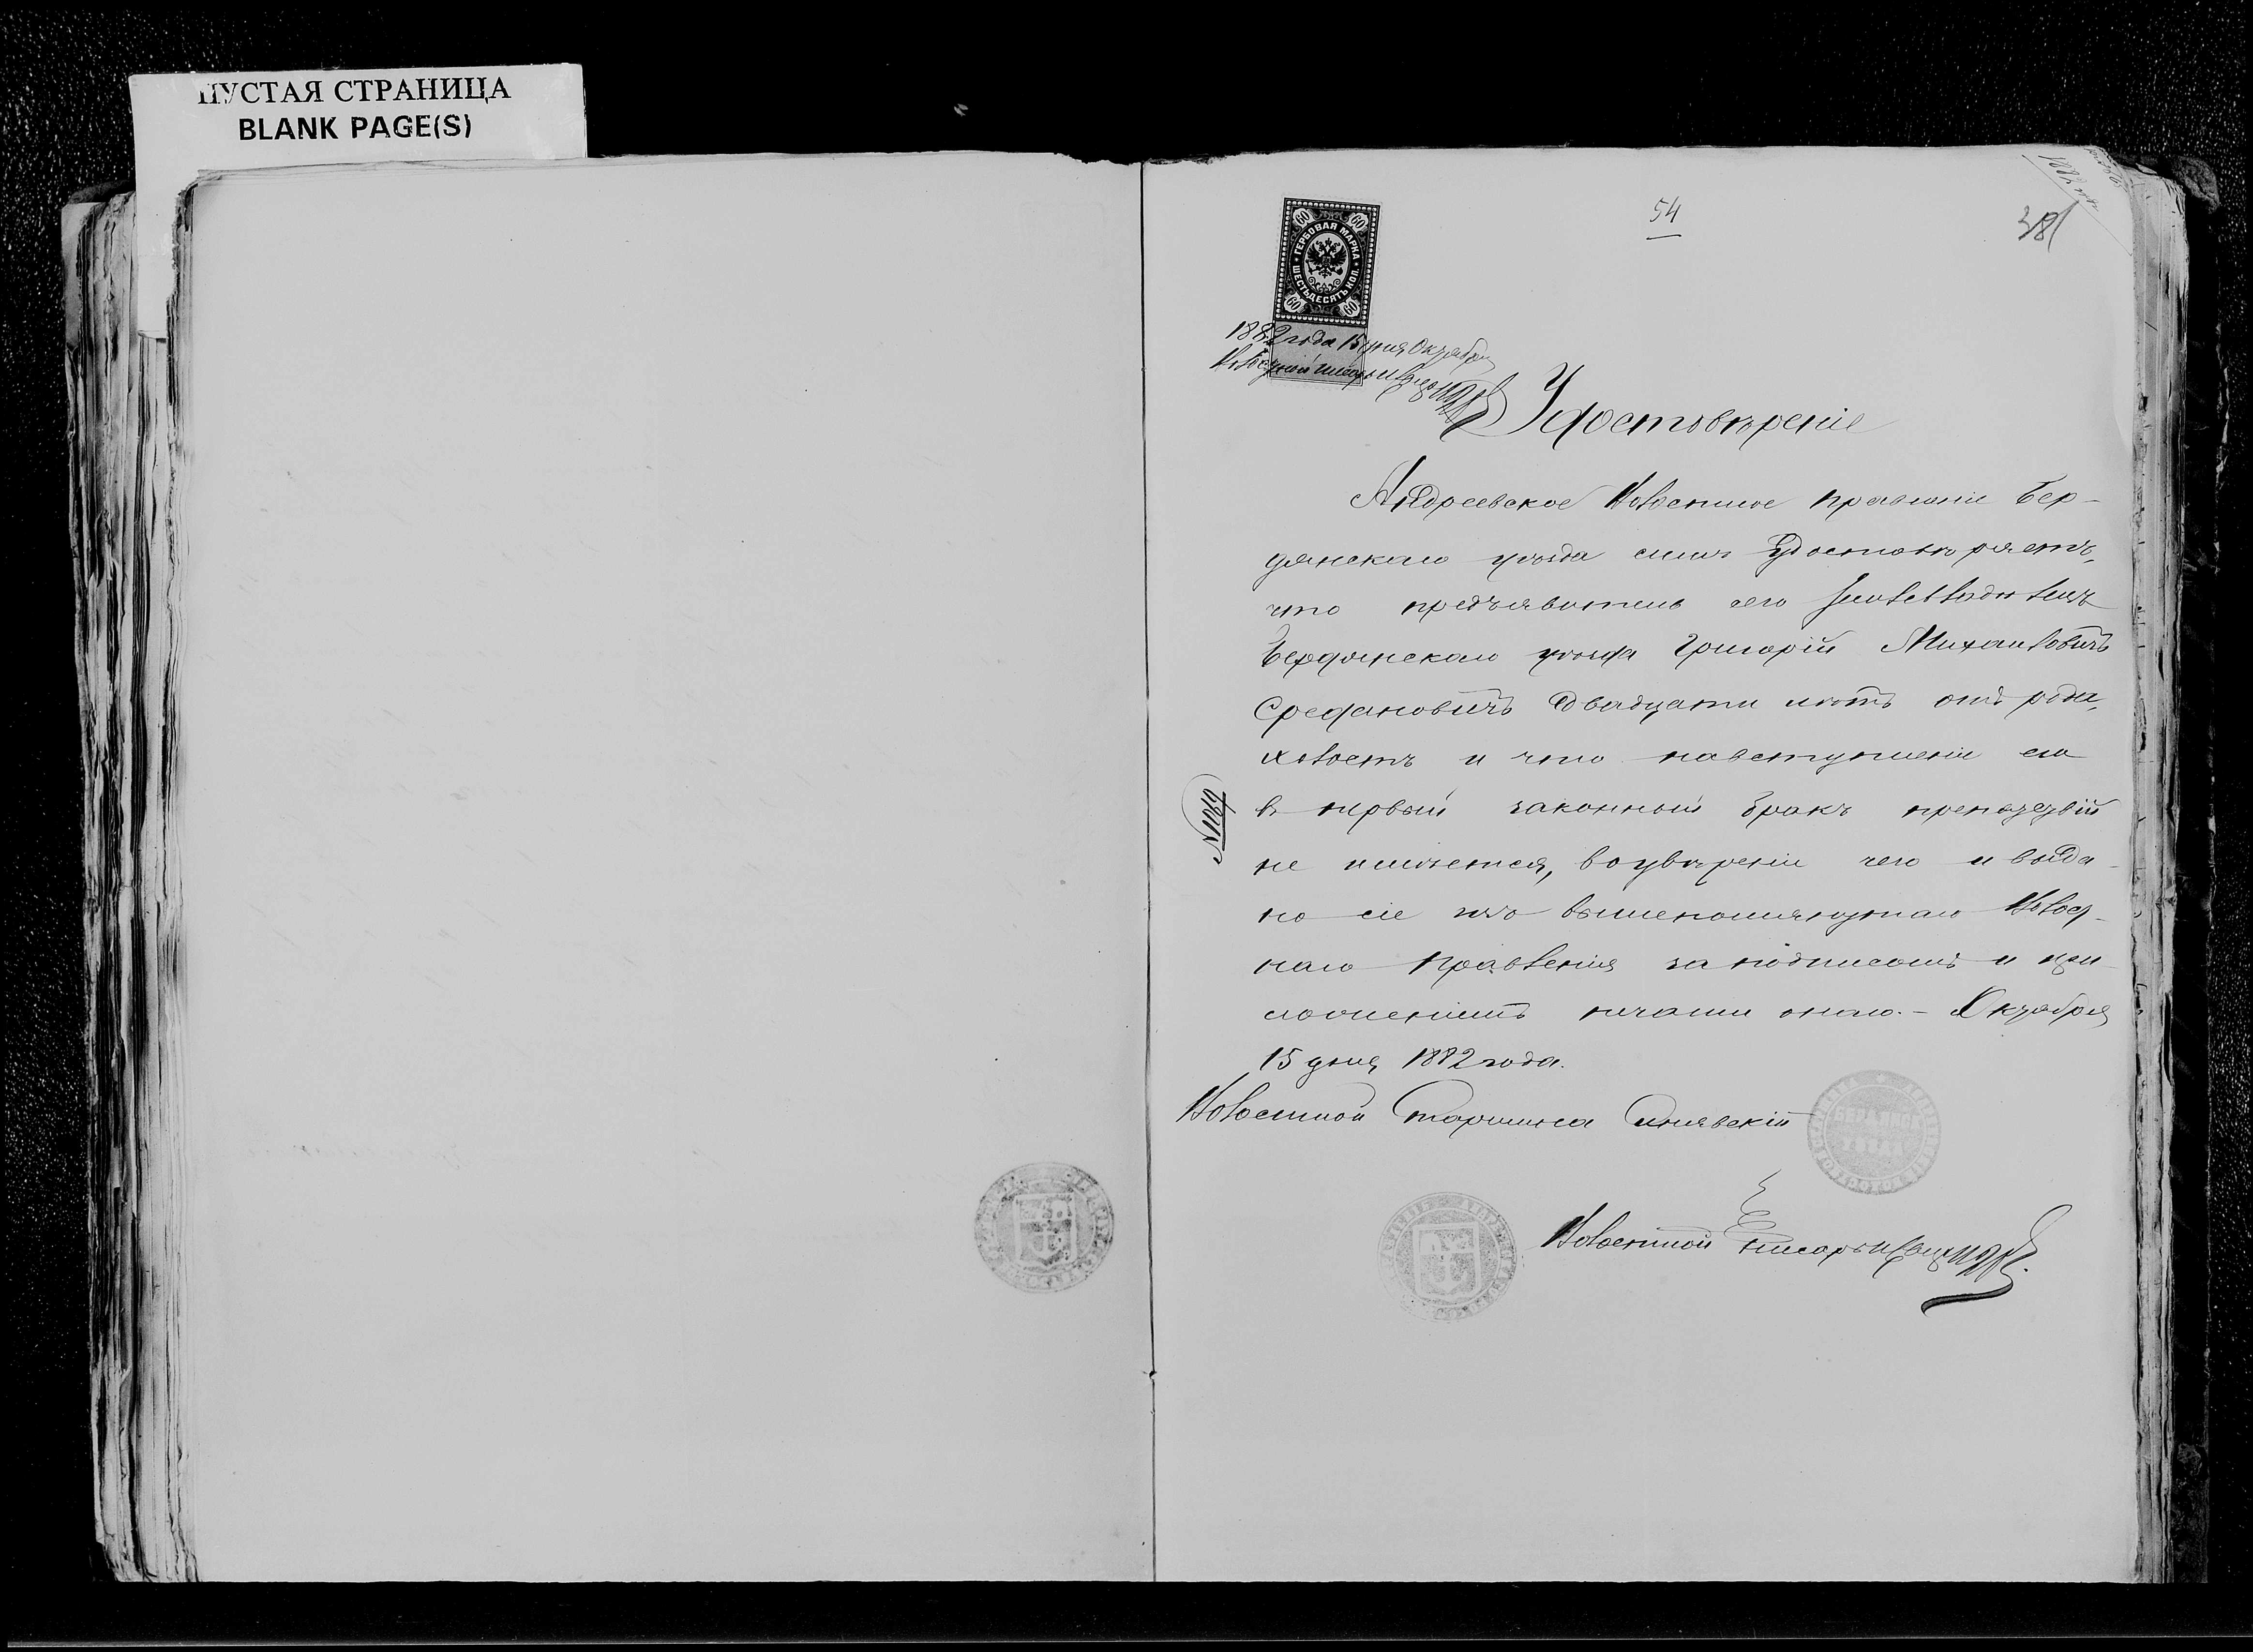 ПУСТАЯ СТРАНИЦА
BLANK PAGE(S)
54
1882
381
60 60
ГЕРБОВАЯ МАРКА
ШЕСТЬДЕСЯТЪ КОП.
60 60
1882 года 15 дня Октября
Волостной писарь
Удостовѣреніе
Андреевское Волостное правленіе Бер-
дянскаго уѣзда симъ удостовѣряетъ,
что предъявитель сего землевладѣлецъ
Бердянскаго уѣзда Григорій Михайловичъ
двадцати лѣтъ отъ рода,
холостъ и что навступленіе его
въ первый законный бракъ препядствій
не имѣется, воувѣреніи чего и выда-
но сіе изъ вышепомянутаго Волост-
наго Правленія за подписомъ и при-
ложеніемъ печати онаго. - Октября
15 дня 1882 года.
№1019
Волостной Старшина Синявскій
Волостной писарь